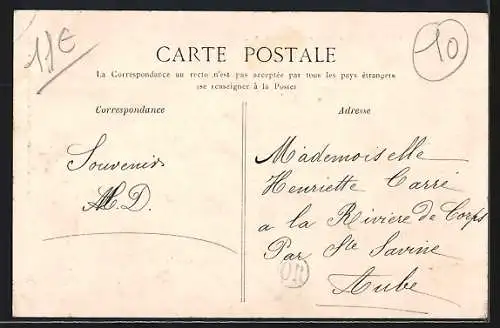 11€
10
CARTE POSTALE
La Correspondance au recto n'est pas acceptée par tous les pays étrangers
(se renseigner à la Poste)
Correspondance
Adresse
Souvenir
M.D.
Mademoiselle
Henriette Carré
a la Rivière de Corps
Par Ste Savine
Aube
OR